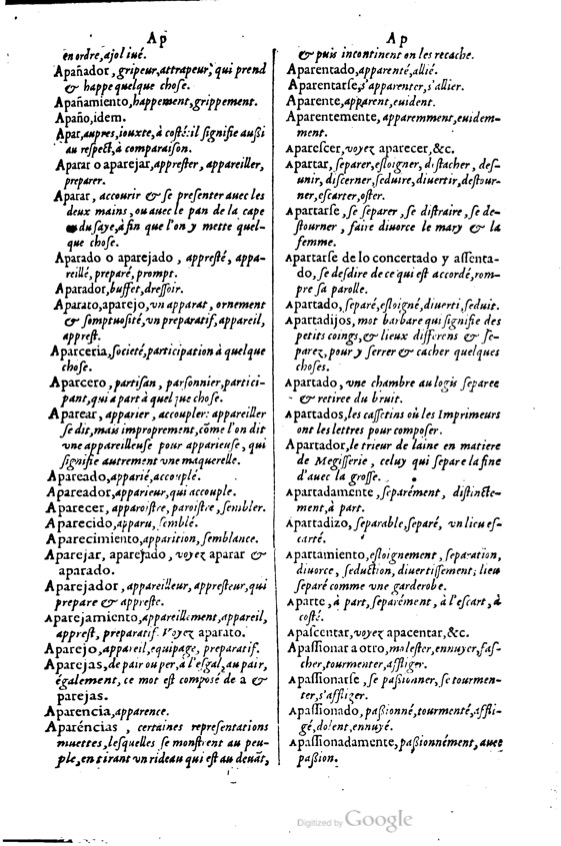 Ap
en ordre, ajoliué.
Apañador, gripeur, attrapeur, qui prend
& happe quelque chose.
Apañamiento, happement, grippement.
Apaño, idem.
Apar, aupres, iouxte, à costé: il signifie außi
au respect, à comparaison.
Aparar o aparejar, appresler, appareiller,
preparer.
Aparar, accourir & se presenter auec les
deux mains, ou auec le pan de la cape
du saye, à fin que l'on y mette quel-
que chose.
Aparado o aparejado, appresté, appa-
reillé, preparé, prompt.
Aparador, buffet, dressoir.
Aparato, aparejo, vn apparat, ornement
& somptuosité, vn preparatif, appareil,
apprest.
Aparceria, societé, participation à quelque
chose.
Aparcero, partisan, parsonnier, partici-
pant, qui a part à quelque chose.
Aparear, apparier, accoupler: appareiller
se dit, mais improprement, cõme l'on dit
vne appareilleuse pour apparieuse, qui
signifie autrement vne maquerelle.
Apareado, apparié, accouplé.
Apareador, apparieur, qui accouple.
Aparecer, apparoistre, paroistre, sembler.
Aparecido, apparu, semblé.
Aparecimiento, apparition, semblance.
Aparejar, aparejado, voyez aparar &
aparado.
Aparejador, appareilleur, appresteur, qui
prepare & appreste.
Aparejamiento, appareillement, appareil,
apprest, preparatif. Voyez aparato.
Aparejo, appareil, equipage, preparatif.
Aparejas, de pair ou per, à l'esgal, au pair,
également, ce mot est composé de a &
parejas.
Aparencia, apparence.
Aparéncias, certaines representations
muettes, lesquelles se monstrent au peu-
ple, en tirant vn rideau qui est au deuãt,
Ap
& puis incontinent on les recache.
Aparentado, apparenté, allié.
Aparentarse, s'apparenter, s'allier.
Aparente, apparent, euident.
Aparentemente, apparemment, euidem-
ment.
Aparescer, voyez aparecer, &c.
Apartar, separer, esloigner, distacher, des-
unir, discerner, seduire, diuertir, destour-
ner, escarter, oster.
Apartarse, se separer, se distraire, se de-
stourner, faire diuorce le mary & la
femme.
Apartarse de lo concertado y assenta-
do, se desdire de ce qui est accordé, rom-
pre sa parolle.
Apartado, separé, esloigné, diuerti, seduit.
Apartadijos, mot barbare qui signifie des
petits coings, & lieux differens & se-
parez, pour y serrer & cacher quelques
choses.
Apartado, vne chambre au logis separee
& retiree du bruit.
Apartados, les cassetins où les Imprimeurs
ont les lettres pour composer.
Apartador, le trieur de laine en matiere
de Megisserie, celuy qui separe la fine
d'auec la grosse.
Apartadamente, separément, distincte-
ment, à part.
Apartadizo, separable, separé, vn lieu es-
carté.
Apartamiento, esloignement, separation,
diuorce, seduction, diuertissement; lieu
separé comme vne garderobe.
Aparte, à part, separément, à l'escart, à
costé.
Apascentar, voyez apacentar, &c.
Apassionar a otro, molester, ennuyer, fas-
cher, tourmenter, affliger.
Apassionarse, se paßionner, se tourmen-
ter, s'affliger.
Apassionado, paßionné, tourmenté, affli-
gé, dolent, ennuyé.
Apassionadamente, paßionnément, auec
paßion.
Digitized by Google